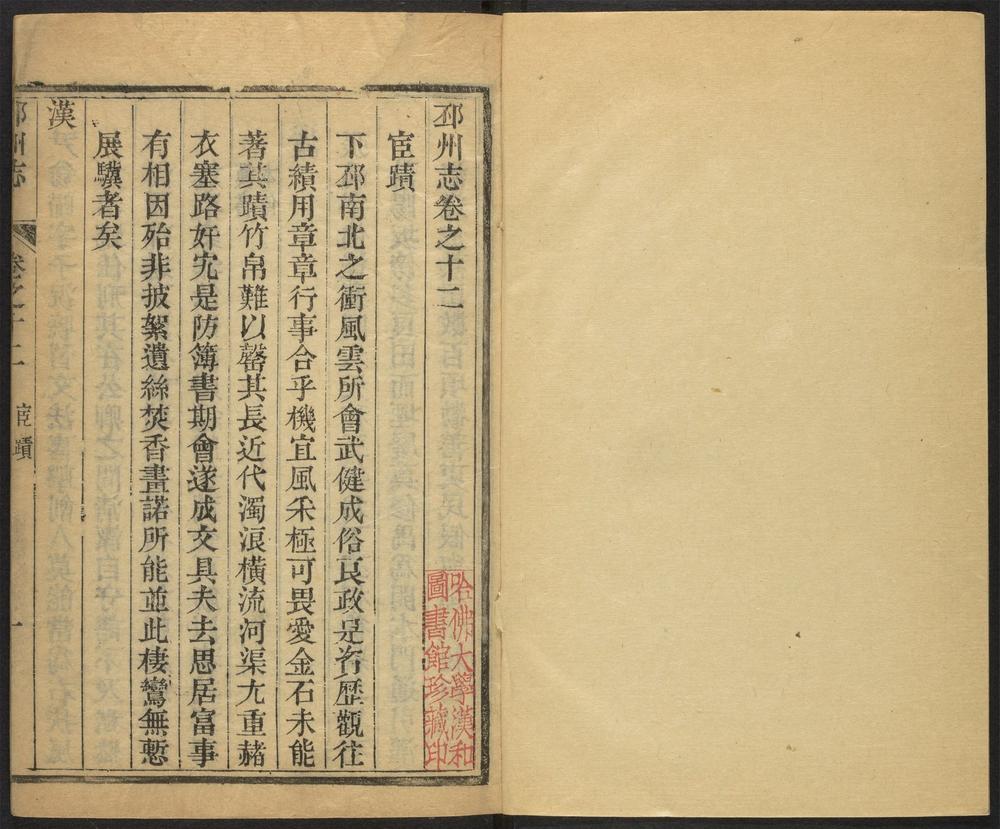 邳州志卷之十二
宦蹟
下邳南北之衝風雲所會武健成俗良政是資歷觀往
古績用章章行事合乎機宜風采極可畏愛金石未能
著其蹟竹帛難以罄其長近代濁浪橫流河渠尤重赭
衣塞路奸宄是防簿書期會遂成文具夫去思居富事
有相因殆非披絮遺絲焚香畫諾所能並此棲鸞無慙
展驥者矣
漢
邳州志 卷之十二 宦蹟 一
哈佛大學漢和
圖書館珍藏印